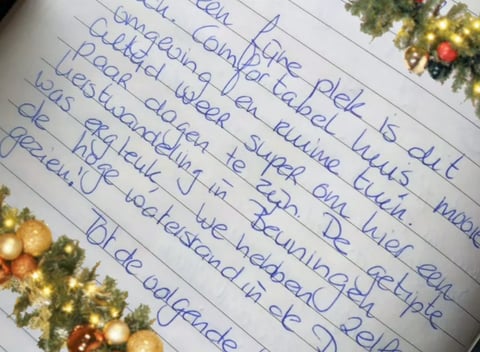 een fijne plek is dit
Comfortabel huis, mooie
omgeving en ruime tuin.
Altijd weer super om hier een
paar dagen te zijn. De getipte
kerstwandeling in Beuningen
was erg leuk, we hebben zelf
de hoge waterstand in de D
gezien!
Tot de volgende